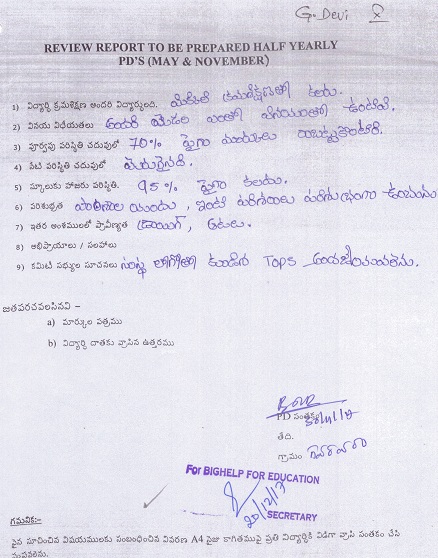 G. Devi
REVIEW REPORT TO BE PREPARED HALF YEARLY
PD'S (MAY & NOVEMBER)
1) విద్యార్థి క్రమశిక్షణ అందరి విద్యార్థులంది. క్రమశిక్షణతో కలదు.
2) వినయ విధేయతలు అందరి యెడల ఎంతో వినయంతో ఉంటుంది.
3) పూర్వపు పరిస్థితి చదువులో 70% పైగా మార్కులు
4) నేటి పరిస్థితి చదువులో మెరుగైనది.
5) స్కూలుకు హాజరు పరిస్థితి. 95% పైగా కలదు.
6) పరిశుభ్రత పాఠశాల యందు, ఇంటి పరిసరాలు పరిశుభ్రంగా ఉంచును
7) ఇతర అంశములలో ప్రావీణ్యత డ్రాయింగ్, ఆటలు.
8) అభిప్రాయాలు / సలహాలు
9) కమిటి సభ్యుల సూచనలు సంస్థ లోగోతో ఉండిన Tops
జతపరచవలసినవి –
a) మార్కుల పత్రము
b) విద్యార్థి దాతకు వ్రాసిన ఉత్తరము
PD సంతకం
తేది.
గ్రామం
For BIGHELP FOR EDUCATION
20/12/17
SECRETARY
గమనిక:-
పైన సూచించిన విషయములకు సంబంధించిన వివరణ A4 సైజు కాగితముపై ప్రతి విద్యార్థికి విడిగా వ్రాసి సంతకం చేసి
పంపవలెను.